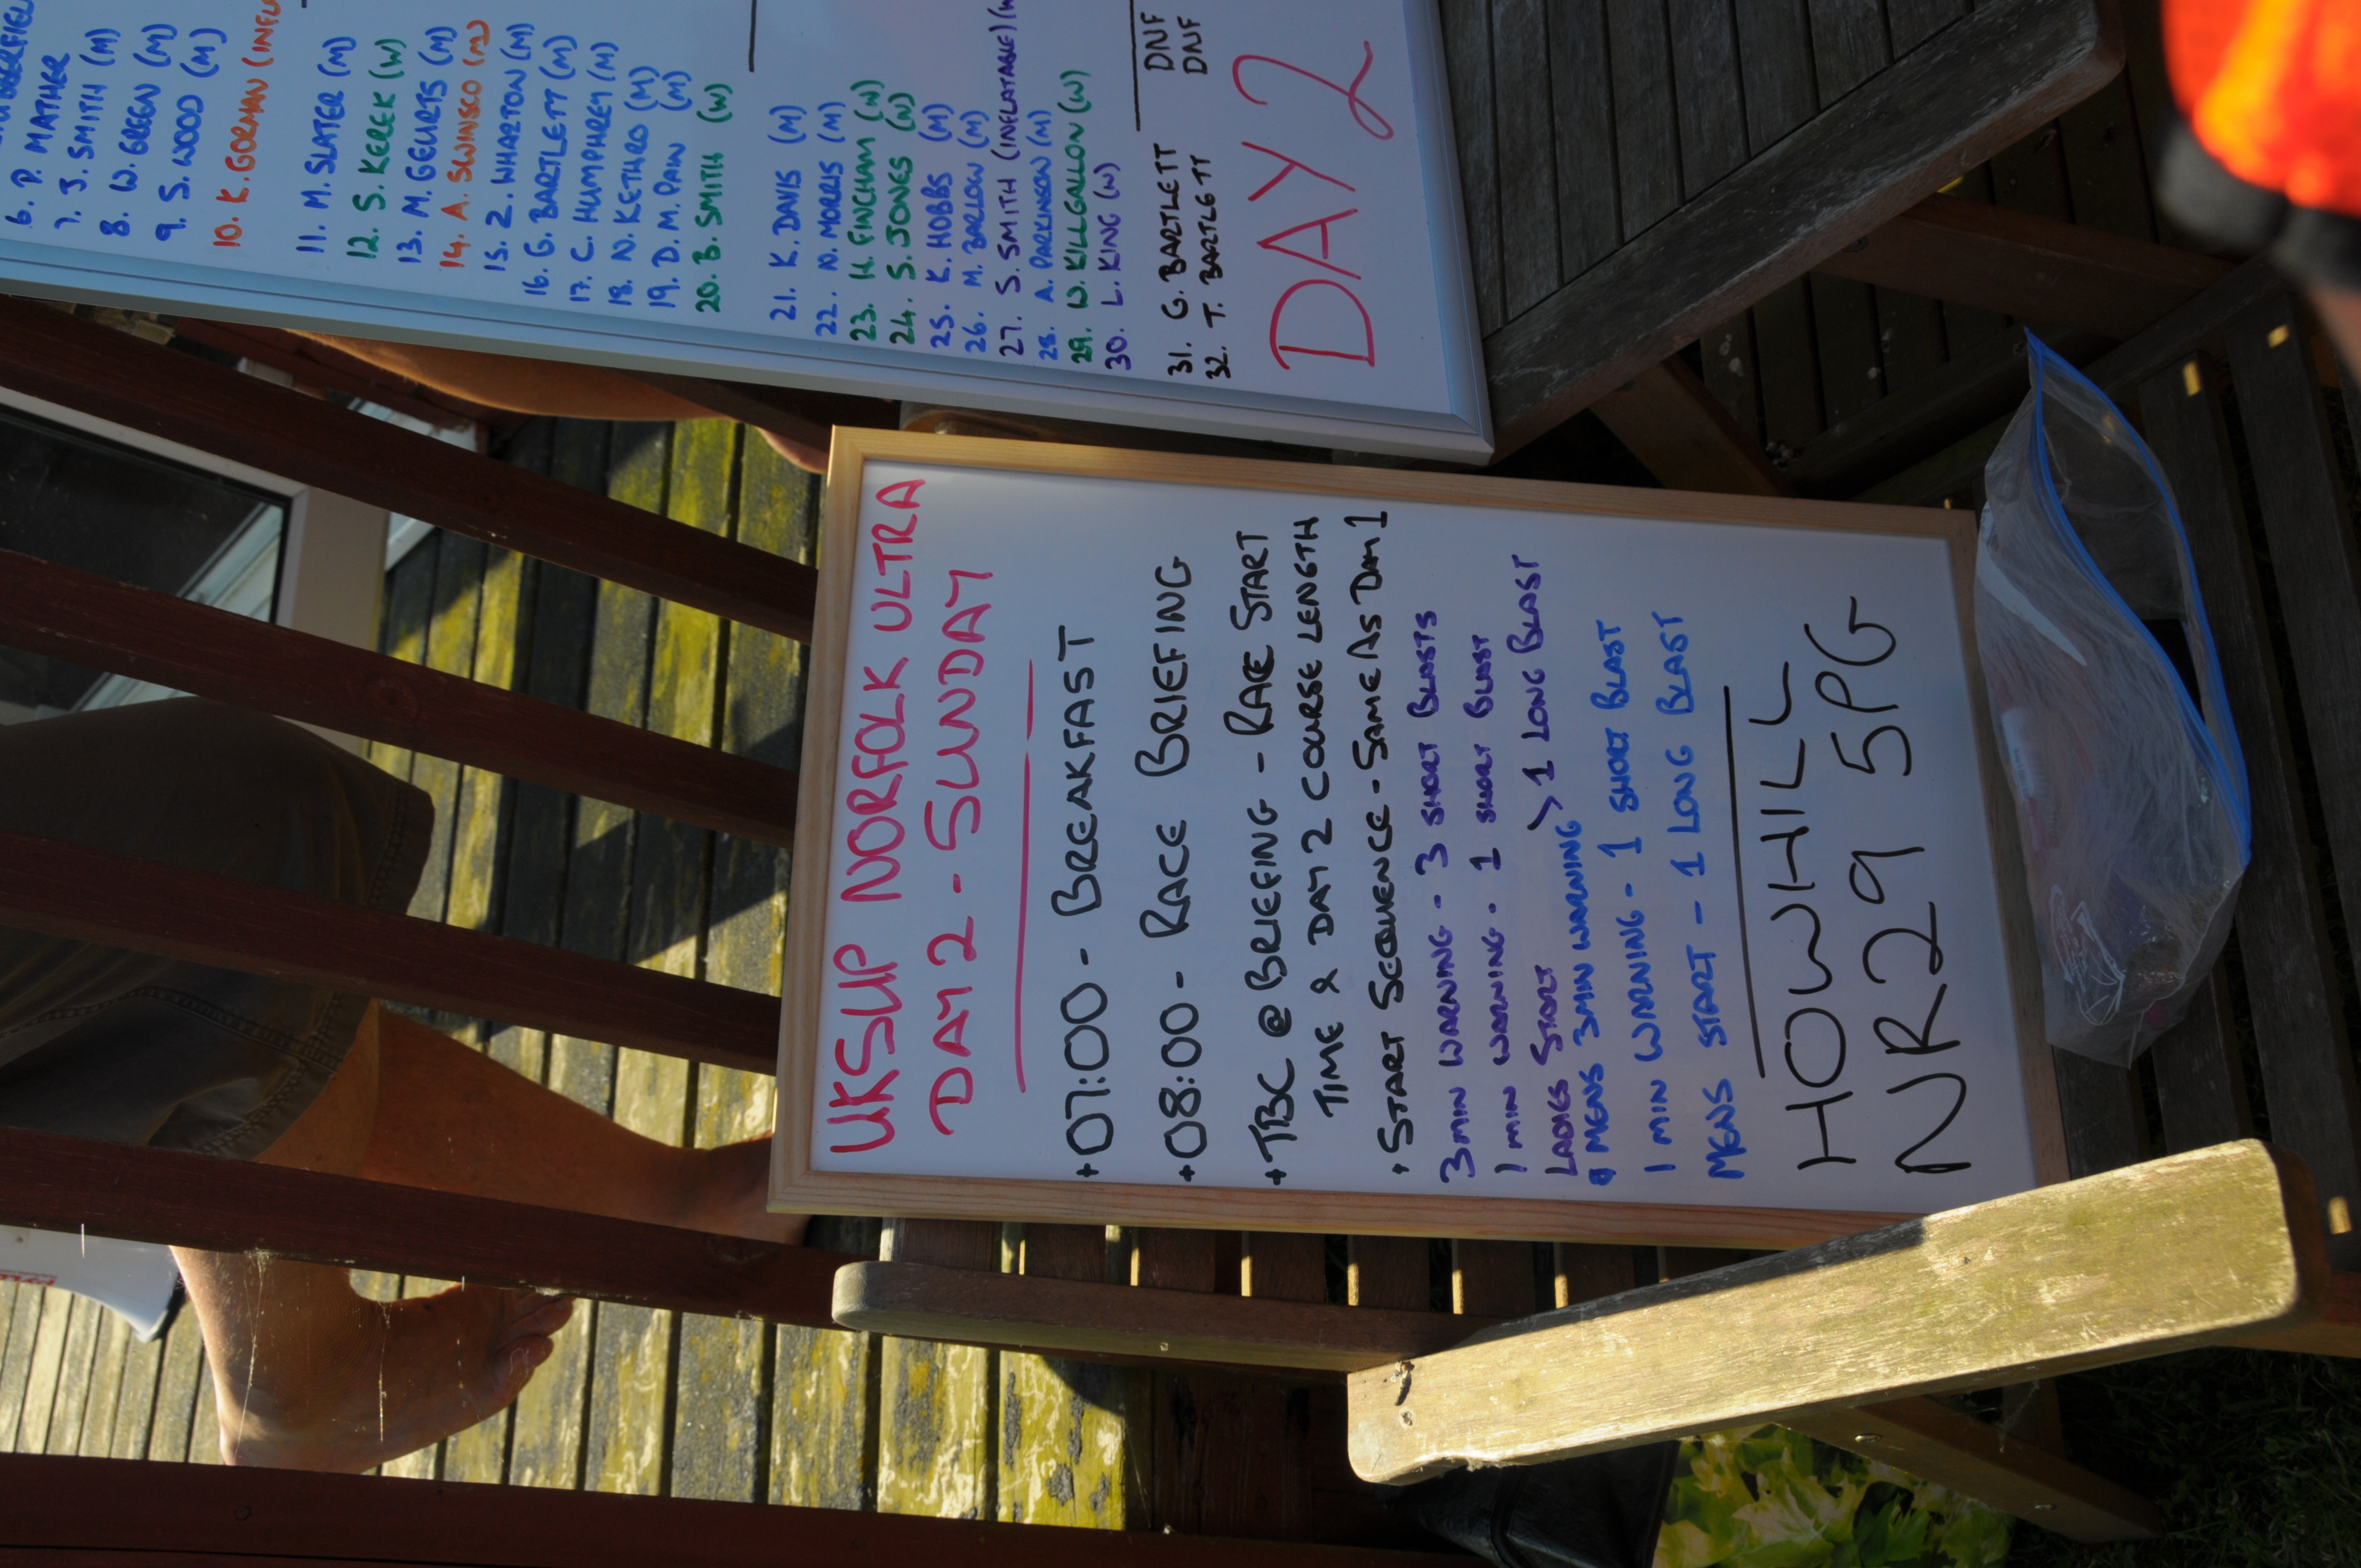 6. P. MATHER
7. J. SMITH (M)
8. W. GREEN (M)
9. S. WOOD (M)
10. K. GORMAN
11. M. SLATER (M)
12. S. KEREK (W)
13. M. GEURTS (M)
14. A. SWINSCO (M)
15. Z. WHARTON (M)
16. G. BARTLETT (M)
17. C. HUMPHREY (M)
18. N. KETHRO (M)
19. D. M. PAIN (M)
20. B. SMITH (W)
21. K. DAVIS (M)
22. N. MORRIS (M)
23. H. FINCHAM (W)
24. S. JONES (W)
25. K. HOBBS (M)
26. M. BARLOW (M)
27. S. SMITH (INFLATABLE)
28. A. PARKINSON (M)
29. W. KILLGALLON (W)
30. L. KING (W)
31. G. BARTLETT DNF
32. T. BARTLETT DNF
DAY 2
UKSUP NORFOLK ULTRA
DAY 2 - SUNDAY
+ 07:00 - BREAKFAST
+ 08:00 - RACE BRIEFING
+ TBC @ BRIEFING - RACE START
TIME & DAY 2 COURSE LENGTH
+ START SEQUENCE - SAME AS DAY 1
3MIN WARNING - 3 SHORT BLASTS
1 MIN WARNING - 1 SHORT BLAST
LADIES START > 1 LONG BLAST
& MENS 3MIN WARNING
1 MIN WARNING - 1 SHORT BLAST
MENS START - 1 LONG BLAST
HOWHILL
NR29 5PG